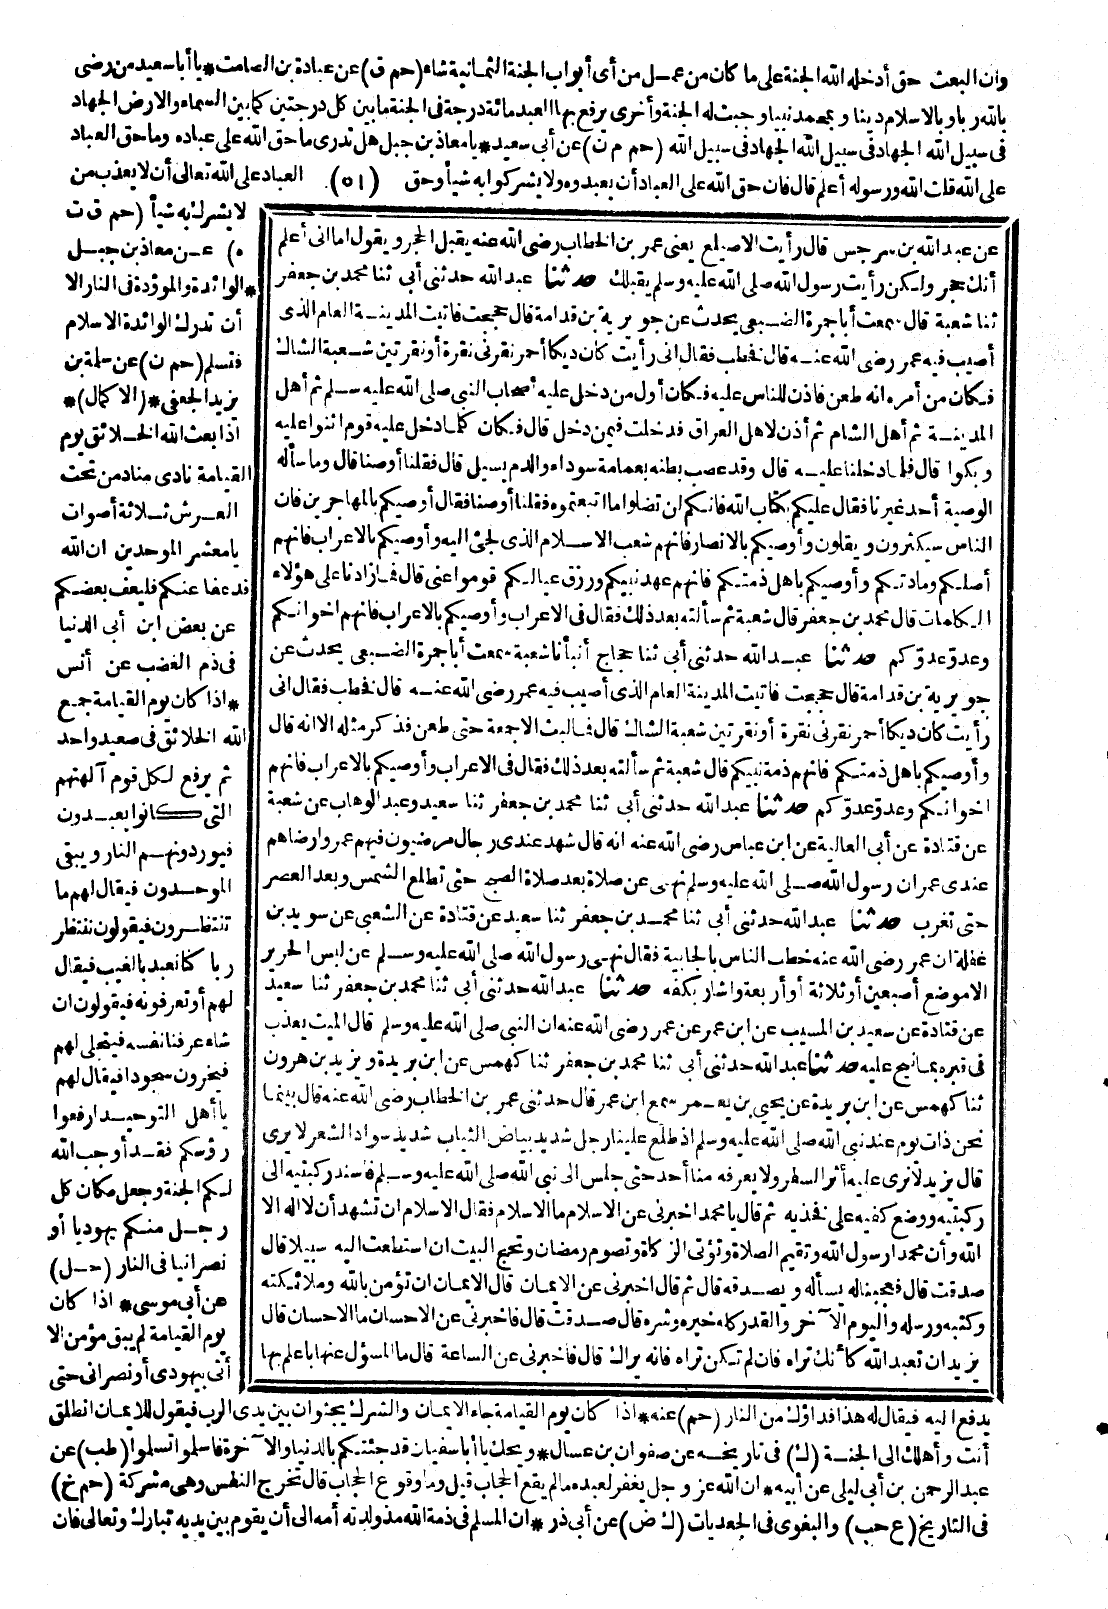 وان البعث حق أدخله الله الجنة على ما كان من عمل من أى أبواب الجنة الثمانية شاء (حم ق) عن عبادة بن الصامت * يا أبا سعيد من رضى
بالله ربا وبالاسلام دينا وبمحمد نبيا وجبت له الجنة وأخرى يرفع بها العبد مائة درجة فى الجنة ما بين كل درجتين كما بين السماء والارض الجهاد
فى سبيل الله الجهاد فى سبيل الله الجهاد فى سبيل الله (حم م ن) عن أبى سعيد * يا معاذ بن جبل هل تدرى ما حق الله على عباده وما حق العباد
على الله قلت الله ورسوله أعلم قال فان حق الله على العباد أن يعبدوه ولا يشركوا به شيأ وحق (٥١) العباد على الله تعالى أن لا يعذب من
لا يشرك به شيأ (حم ق ت
ه) عن معاذ بن جبل
* الوائدة والموؤدة فى النار الا
أن تدرك الوائدة الاسلام
فتسلم (حم ن) عن سلمة بن
يزيد الجعفى * (الاكمال) *
اذا بعث الله الخلائق يوم
القيامة نادى مناد من تحت
العرش ثلاثة أصوات
يا معشر الموحدين ان الله
قد عفا عنكم فليعف بعضكم
عن بعض ابن أبى الدنيا
فى ذم الغضب عن أنس
* اذا كان يوم القيامة جمع
الله الخلائق فى صعيد واحد
ثم يرفع لكل قوم آلهتهم
التى كانوا يعبدون
فيوردونهم النار ويبقى
الموحدون فيقال لهم ما
تنتظرون فيقولون ننتظر
ربا كنا نعبد بالغيب فيقال
لهم أو تعرفونه فيقولون ان
شاء عرفنا نفسه فيتجلى لهم
فيخرون سجودا فيقال لهم
يا أهل التوحيد ارفعوا
رؤسكم فقد أوجب الله
لكم الجنة وجعل مكان كل
رجل منكم يهوديا أو
نصرانيا فى النار (حل)
عن أبى موسى * اذا كان
يوم القيامة لم يبق مؤمن الا
أتى بيهودى أو نصرانى حتى
عن عبد الله بن سرجس قال رأيت الاصيلع يعنى عمر بن الخطاب رضى الله عنه يقبل الحجر ويقول اما انى أعلم
أنك حجر ولكن رأيت رسول الله صلى الله عليه وسلم يقبلك حدثنا عبد الله حدثنى أبى ثنا محمد بن جعفر
ثنا شعبة قال سمعت أبا جمرة الضبعى يحدث عن جويرية بن قدامة قال حججت فاتيت المدينة العام الذى
أصيب فيه عمر رضى الله عنه قال فخطب فقال انى رأيت كان ديكا أحمر نقرنى نقرة أو نقرتين شعبة الشاك
فكان من أمره انه طعن فاذن للناس عليه فكان أول من دخل عليه أصحاب النبى صلى الله عليه وسلم ثم أهل
المدينة ثم أهل الشام ثم أذن لاهل العراق فدخلت فيمن دخل قال فكان كلما دخل عليه قوم اثنوا عليه
وبكوا قال فلما دخلنا عليه قال وقد عصب بطنه بعمامة سوداء والدم يسيل قال فقلنا أوصنا قال وما سأله
الوصية أحد غيرنا فقال عليكم بكتاب الله فانكم لن تضلوا ما اتبعتموه فقلنا أوصنا فقال أوصيكم بالمهاجرين فان
الناس سيكثرون ويقلون وأوصيكم بالانصار فانهم شعب الاسلام الذى لجئ اليه وأوصيكم بالاعراب فانهم
أصلكم ومادتكم وأوصيكم باهل ذمتكم فانهم عهد نبيكم ورزق عيالكم قوموا عنى قال فما زادنا على هؤلاء
الكلمات قال محمد بن جعفر قال شعبة ثم سألته بعد ذلك فقال فى الاعراب وأوصيكم بالاعراب فانهم اخوانكم
وعدو عدوكم حدثنا عبد الله حدثنى أبى ثنا حجاج أنبأنا شعبة سمعت أبا جمرة الضبعى يحدث عن
جويرية بن قدامة قال حججت فاتيت المدينة العام الذى أصيب فيه عمر رضى الله عنه قال فخطب فقال انى
رأيت كان ديكا أحمر نقرنى نقرة أو نقرتين شعبة الشاك قال فما لبث الا جمعة حتى طعن فذكر مثله الا انه قال
وأوصيكم باهل ذمتكم فانهم ذمة نبيكم قال شعبة ثم سألته بعد ذلك فقال فى الاعراب وأوصيكم بالاعراب فانهم
اخوانكم وعدو عدوكم حدثنا عبد الله حدثنى أبى ثنا محمد بن جعفر ثنا سعيد وعبد الوهاب عن شعبة
عن قتادة عن أبى العالية عن ابن عباس رضى الله عنه انه قال شهد عندى رجال مرضيون فيهم عمر وارضاهم
عندى عمر ان رسول الله صلى الله عليه وسلم نهى عن صلاة بعد صلاة الصبح حتى تطلع الشمس وبعد العصر
حتى تغرب حدثنا عبد الله حدثنى أبى ثنا محمد بن جعفر ثنا سعيد عن قتادة عن الشعبى عن سويد بن
غفلة ان عمر رضى الله عنه خطب الناس بالجابية فقال نهى رسول الله صلى الله عليه وسلم عن لبس الحرير
الا موضع أصبعين أو ثلاثة أو أربعة واشار بكفه حدثنا عبد الله حدثنى أبى ثنا محمد بن جعفر ثنا سعيد
عن قتادة عن سعيد بن المسيب عن ابن عمر عن عمر رضى الله عنه ان النبى صلى الله عليه وسلم قال الميت يعذب
فى قبره بما نيح عليه حدثنا عبد الله حدثنى أبى ثنا محمد بن جعفر ثنا كهمس عن ابن بريدة ويزيد بن هرون
ثنا كهمس عن ابن بريدة عن يحيى بن يعمر سمع ابن عمر قال حدثنى عمر بن الخطاب رضى الله عنه قال بينما
نحن ذات يوم عند نبى الله صلى الله عليه وسلم اذ طلع علينا رجل شديد بياض الثياب شديد سواد الشعر لا يرى
قال يزيد لا نرى عليه أثر السفر ولا يعرفه منا أحد حتى جلس الى نبى الله صلى الله عليه وسلم فاسند ركبتيه الى
ركبتيه ووضع كفيه على فخذيه ثم قال يا محمد اخبرنى عن الاسلام ما الاسلام فقال الاسلام ان تشهد أن لا اله الا
الله وأن محمدا رسول الله وتقيم الصلاة وتؤتى الزكاة وتصوم رمضان وتحج البيت ان استطعت اليه سبيلا قال
صدقت قال فعجبنا له يسأله ويصدقه قال ثم قال اخبرنى عن الايمان قال الايمان ان تؤمن بالله وملائكته
وكتبه ورسله واليوم الآخر والقدر كله خيره وشره قال صدقت قال فاخبرنى عن الاحسان ما الاحسان قال
يزيد ان تعبد الله كأنك تراه فان لم تكن تراه فانه يراك قال فاخبرنى عن الساعة قال ما المسؤل عنها باعلم بها
يدفع اليه فيقال له هذا فداؤك من النار (حم) عنه * اذا كان يوم القيامة جاء الايمان والشرك يجثوان بين يدى الرب فيقول للايمان انطلق
أنت وأهلك الى الجنة (ك) فى تاريخه عن صفوان بن عسال * ويحك يا أبا سفيان قد جئتكم بالدنيا والآخرة فاسلموا تسلموا (طب) عن
عبد الرحمن بن أبى ليلى عن أبيه * ان الله عز وجل يغفر لعبده ما لم يقع الحجاب قيل وما وقوع الحجاب قال تخرج النفس وهى مشركة (حم خ)
فى التاريخ (ع حب) والبغوى فى الجعديات (ك ض) عن أبى ذر * ان المسلم فى ذمة الله مذ ولدته أمه الى أن يقوم بين يديه تبارك وتعالى فان